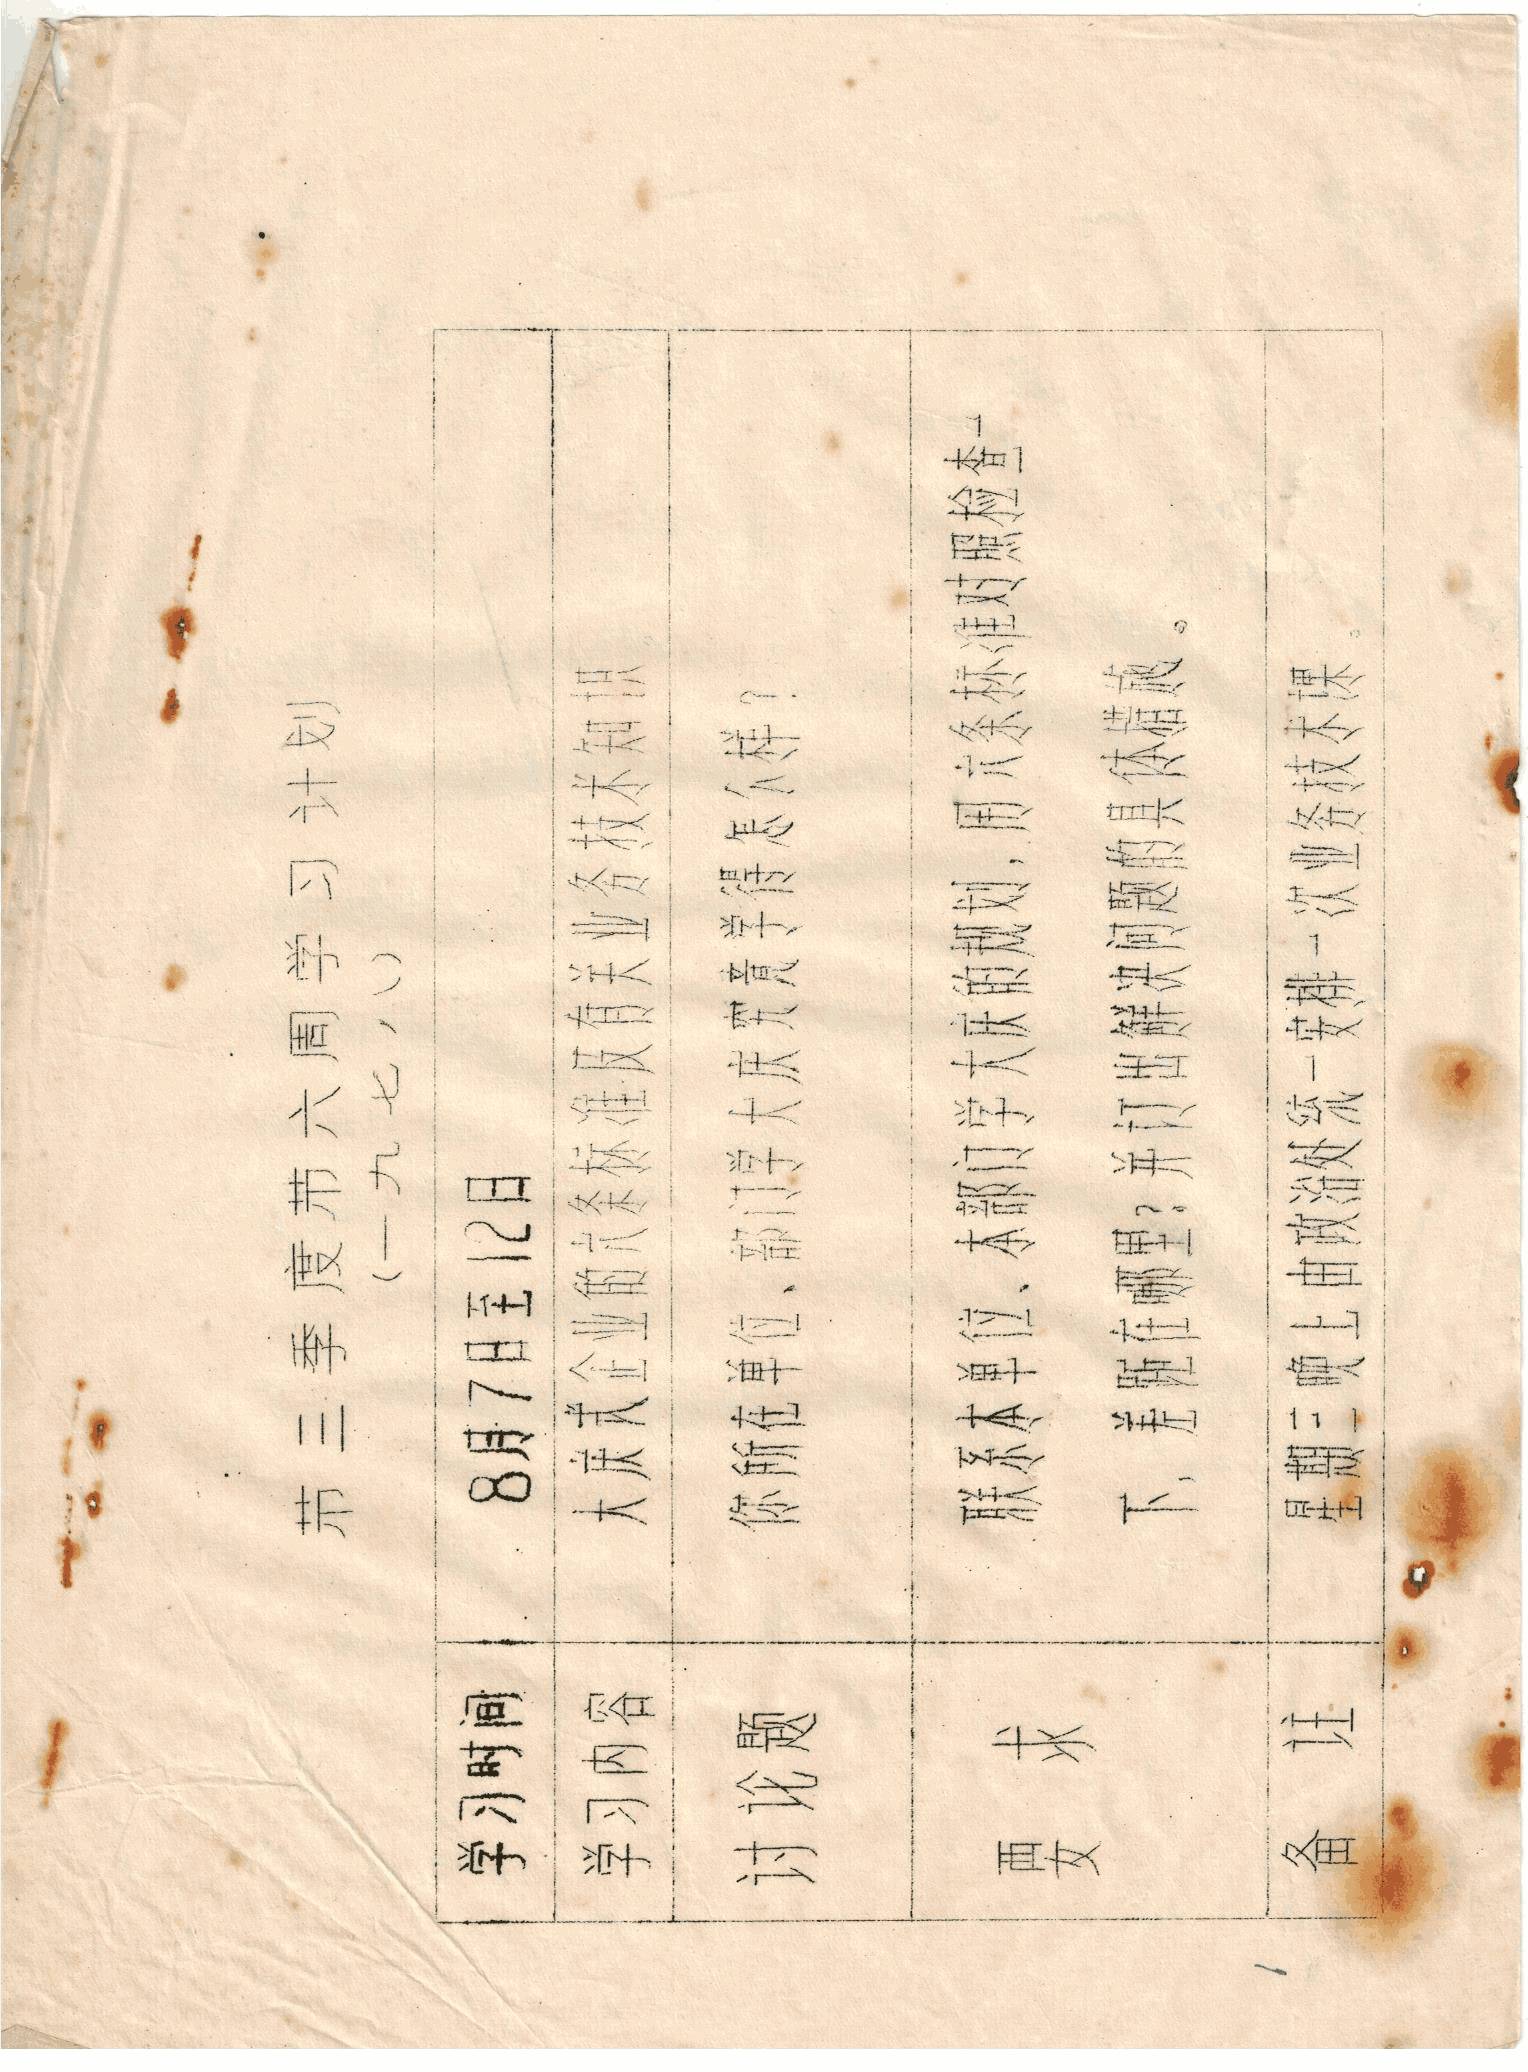 第三季度第六周学习计划
(一九七八)
学习时间 8月7日至12日
学习内容 大庆式企业的六条标准及有关业务技术知识
讨论题 你所在单位、部门学大庆究竟学得怎么样?.
要求 联系本单位、本部门学大庆的规划,用六条标准对照检查一
下、差距在哪里?并订出解决问题的具体措施。
备注 星期二晚上由政治处统一安排一次业务技术课。